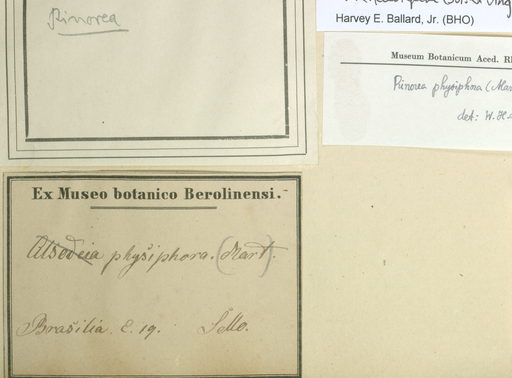 Rinorea
Harvey E. Ballard, Jr. (BHO)
Museum Botanicum Acad. Rh
Rinorea physiphora (Mar
det: W.H.
Ex Museo botanico Berolinensi.
Alsodeia physiphora. (Mart).
Brasilia. E. 19. Sello.